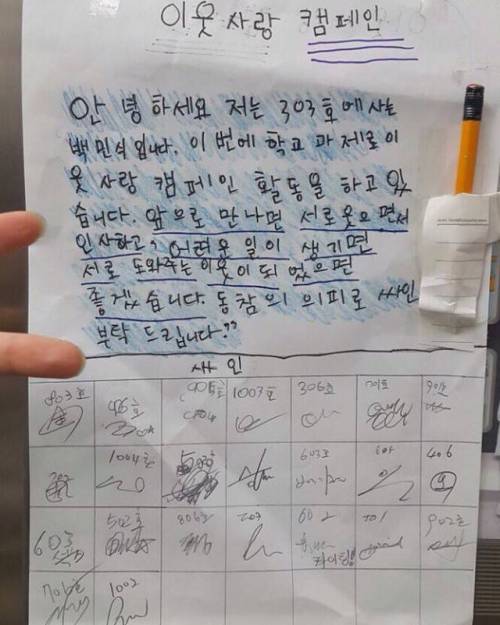 이웃 사랑 캠페인
안녕하세요 저는 303호에 사는
백민식입니다. 이번에 학교 과제로 이
웃 사랑 캠페인 활동을 하고 있
습니다. 앞으로 만나면 서로웃으면서
인사하고, 어려운 일이 생기면
서로 도와주는 이웃이 되었으면
좋겠습니다. 동참의 의피로 싸인
부탁 드립니다."
싸인
803호 1003호 306호
1004호 603호 406
603호 502호 806호 203 602 701 902호
화이팅!
706호 1002